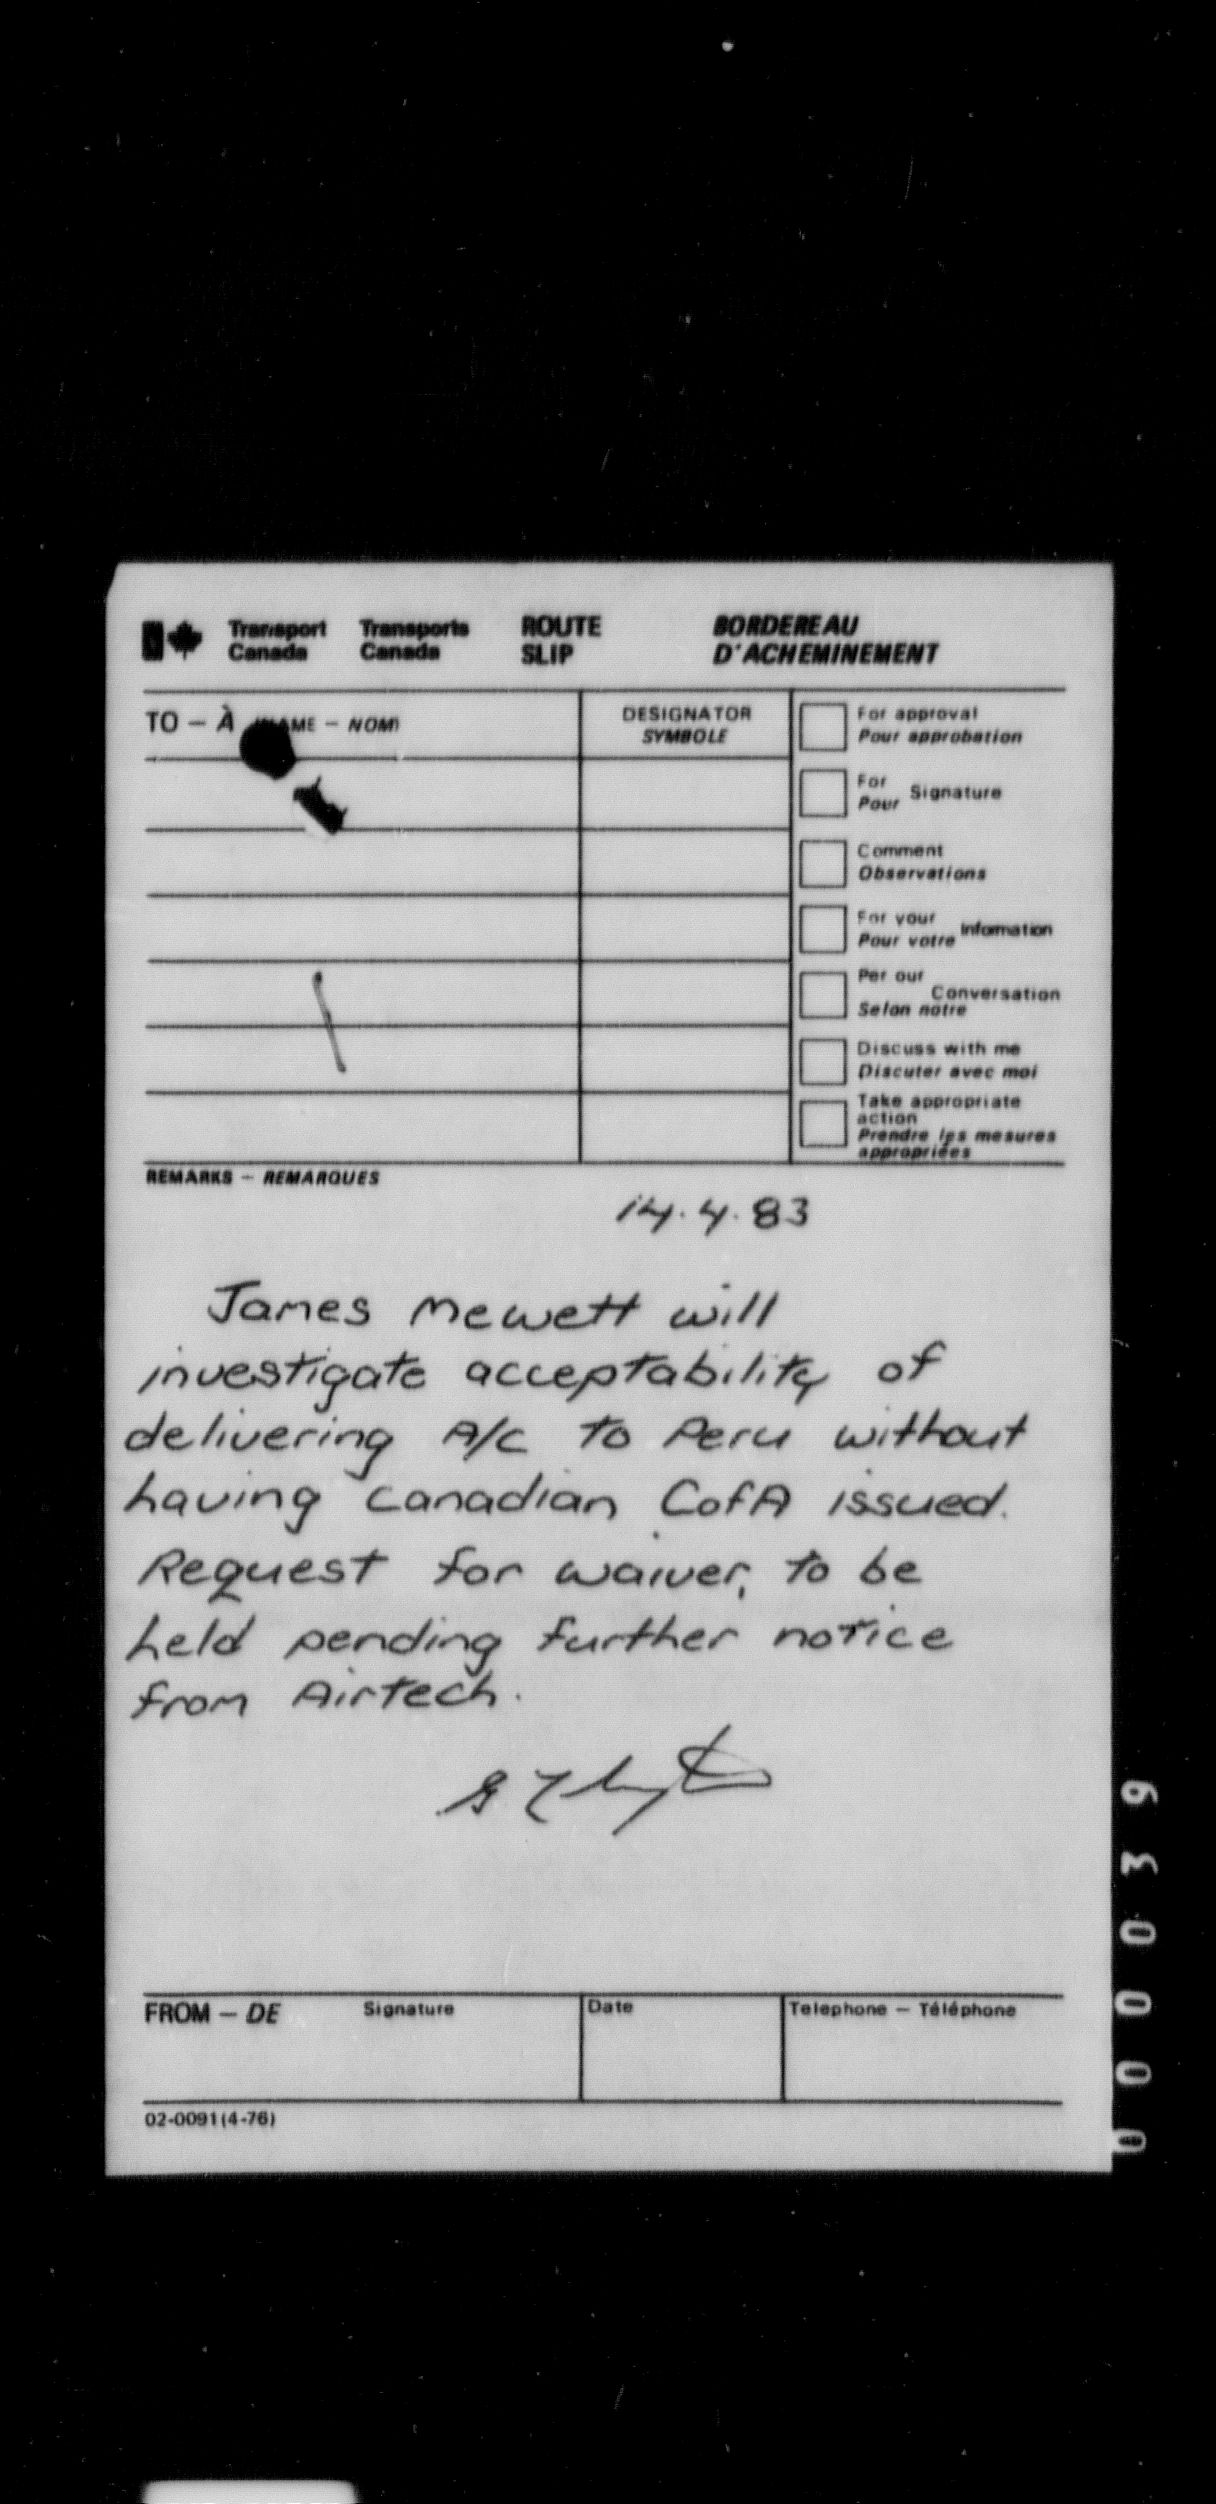 Transport Canada Transports Canada ROUTE SLIP BORDEREAU D'ACHEMINEMENT
TO — À (NAME — NOM)
DESIGNATOR
SYMBOLE
For approval
Pour approbation
For
Pour Signature
Comment
Observations
For your
Pour votre Information
Per our
Conversation
Selon notre
Discuss with me
Discuter avec moi
Take appropriate
action
Prendre les mesures
appropriées
REMARKS — REMARQUES
14.4.83
James Mewett will
investigate acceptability of
delivering A/C to Peru without
having Canadian CofA issued.
Request for waiver, to be
held pending further notice
from Airtech.
FROM — DE Signature Date Telephone — Téléphone
02-0091 (4-76)
000039